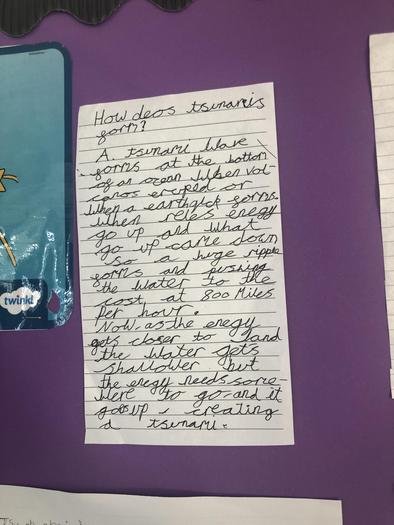 How deos tsunamis
form?
A. tsunami wave
forms at the bottom
of an ocean when vol-
canos eruped or
when a earthquick forms.
when reles enegy
go up and what
go up came down
so a huge ripple
forms and pushing
the water to the
cost at 800 Miles
per hour.
Now as the enegy
gets closer to land
the water gets
shallower but
the enegy needs some-
where to go and it
goes up, creating
a tsunami.
twinkl